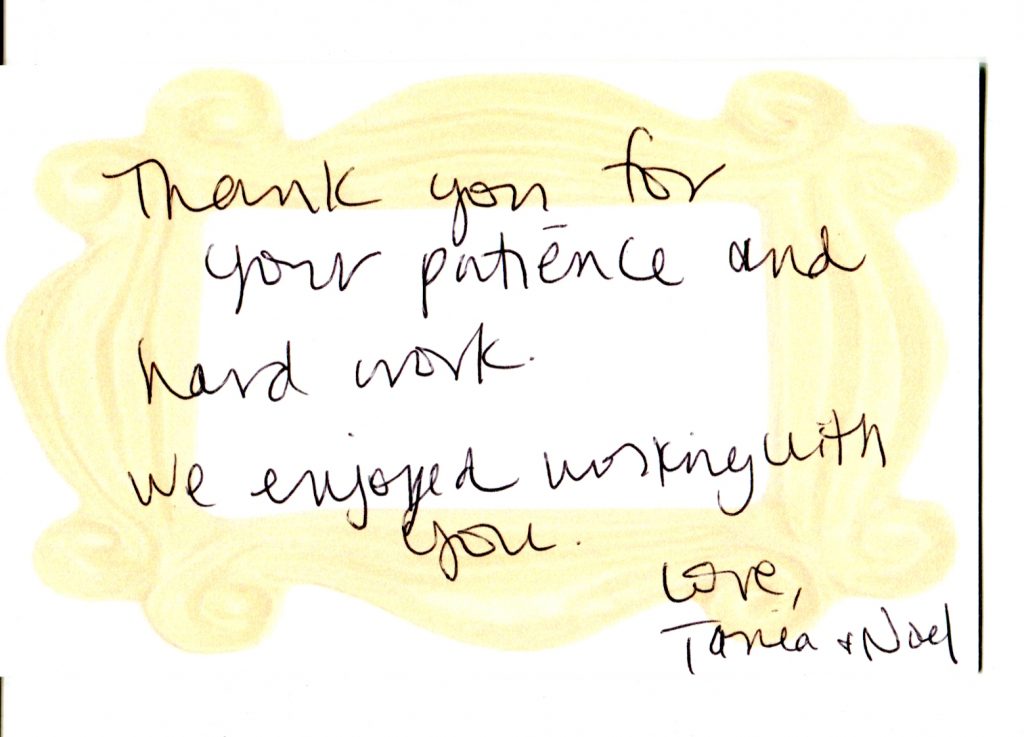 Thank you for
your patience and
hard work.
We enjoyed working with
you.
Love,
Tania + Noel